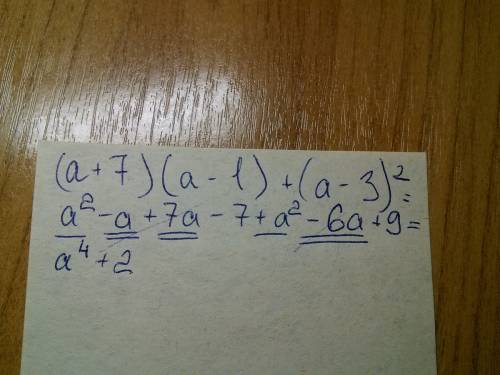 (a + 7)(a - 1) + (a - 3)² =
a² - a + 7a - 7 + a² - 6a + 9 =
a⁴ + 2